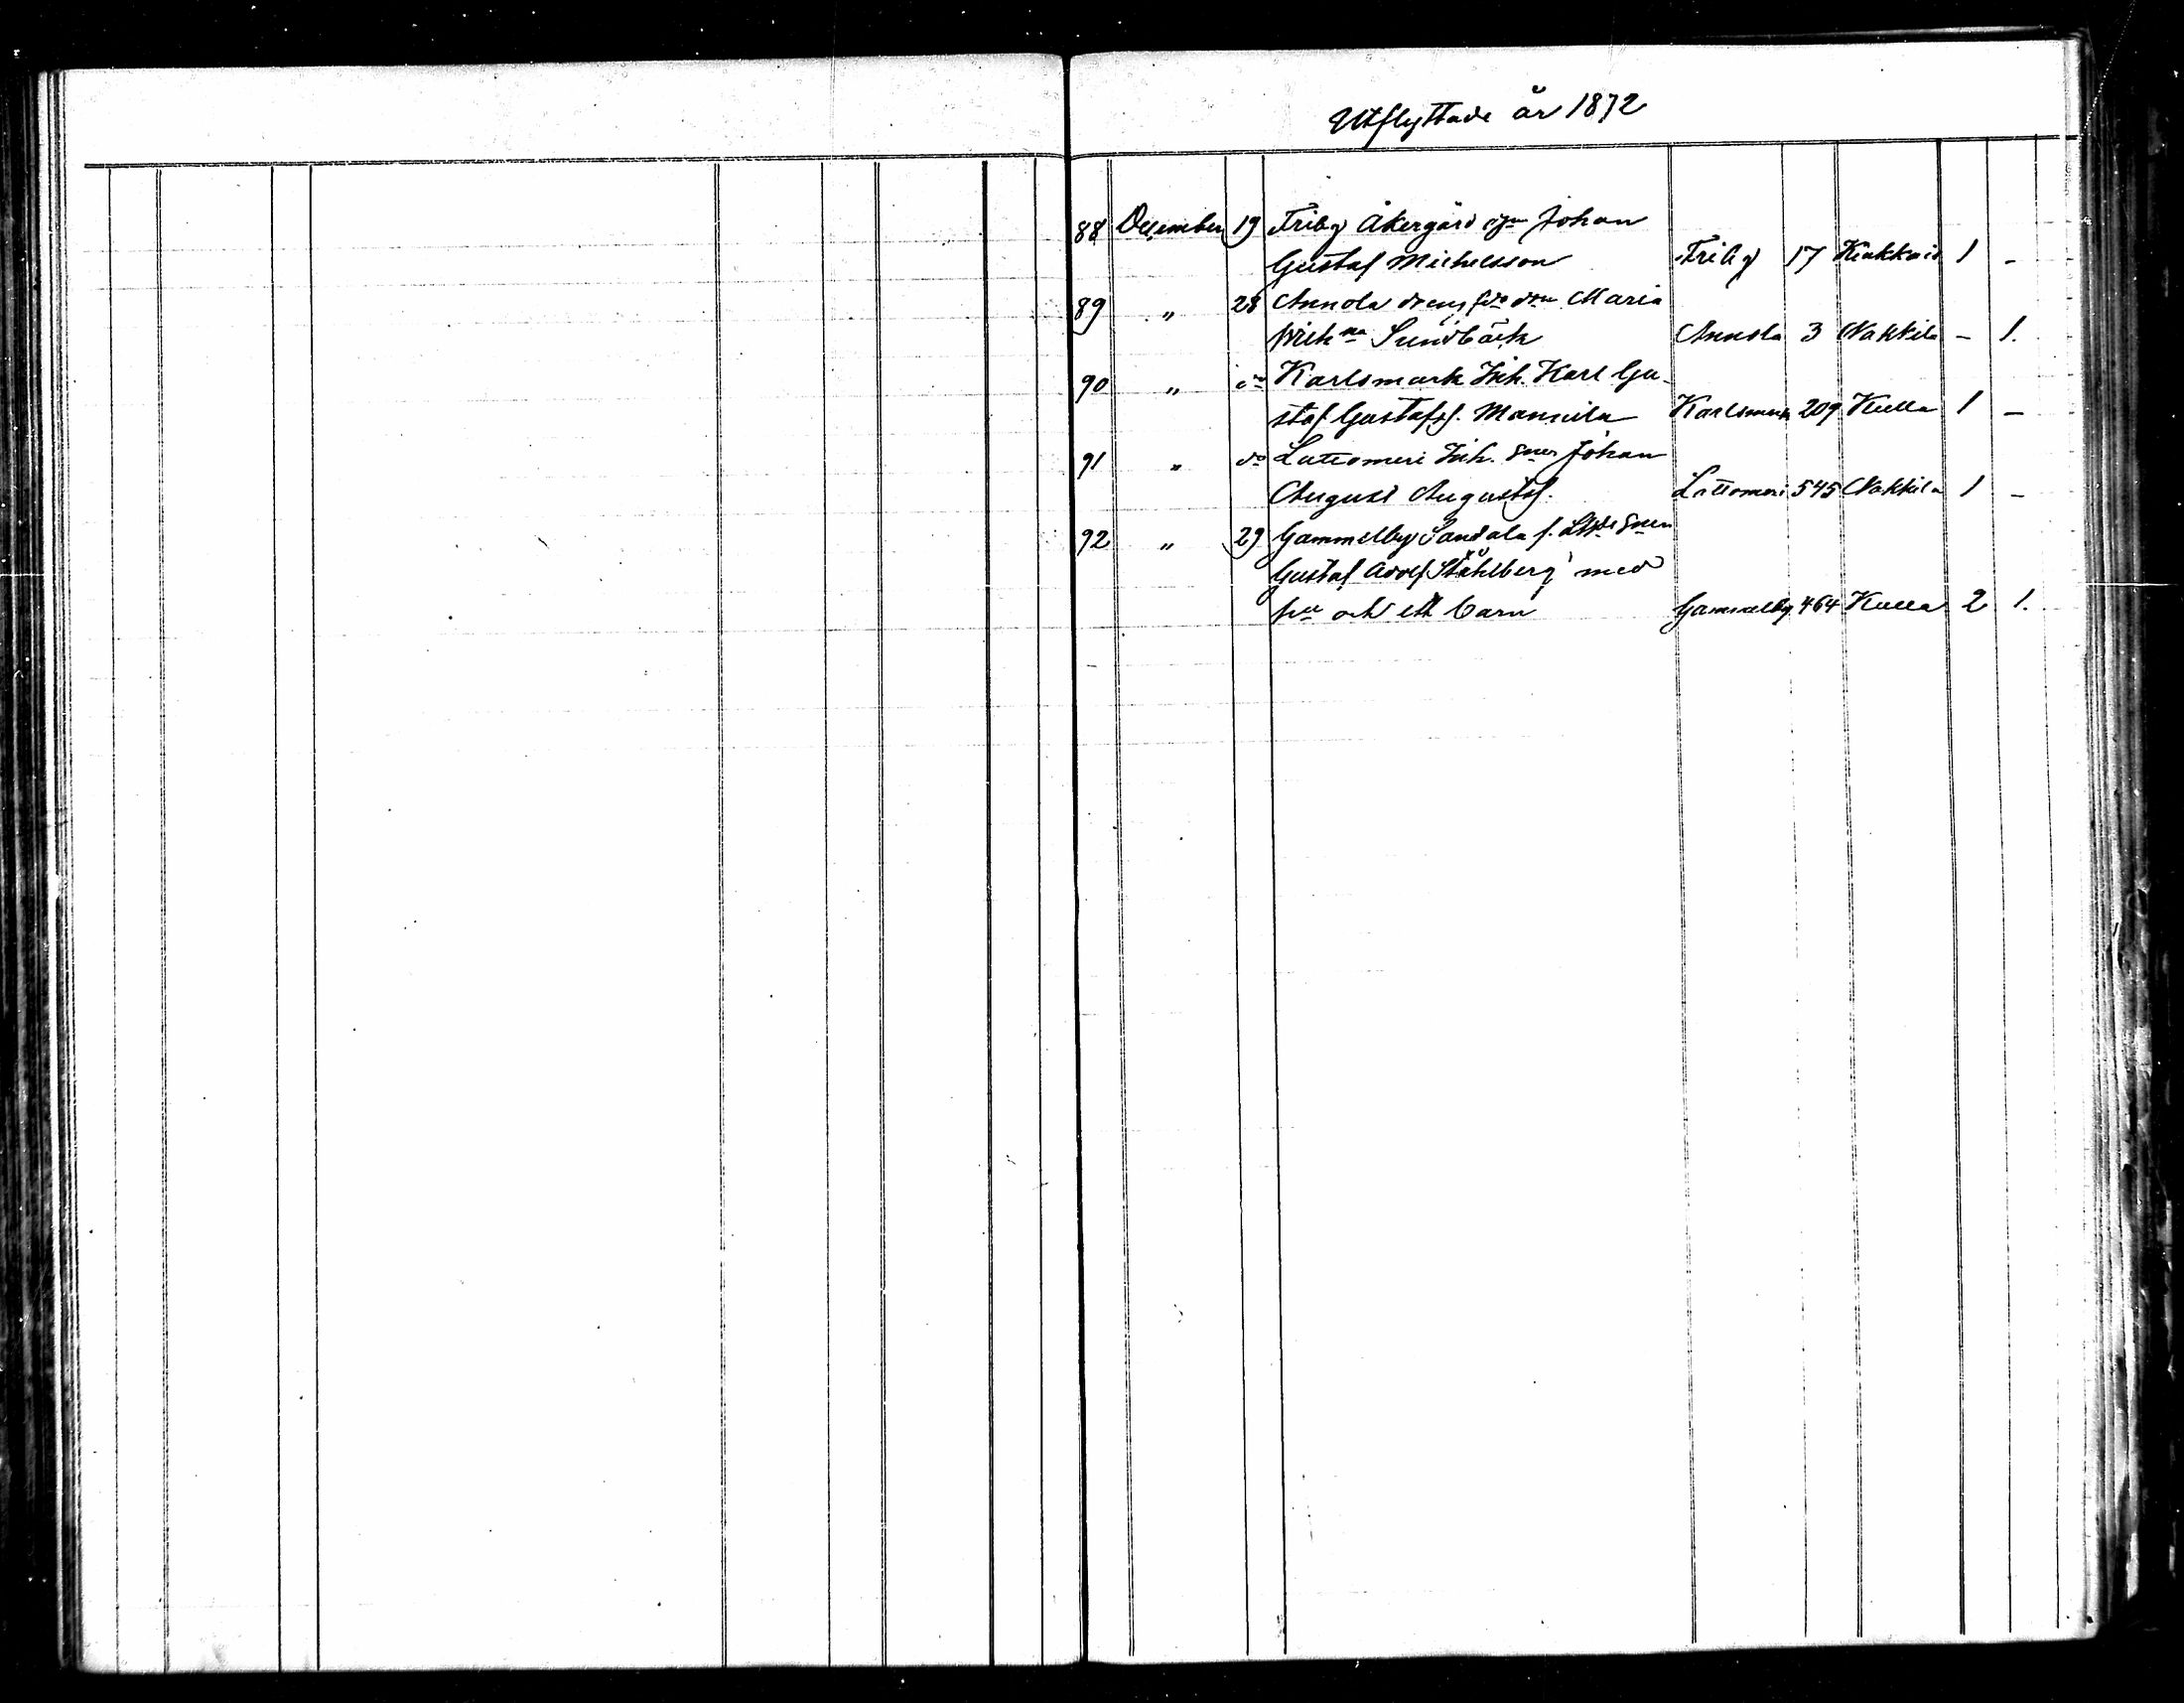 Utflyttade år 1872
88 December 19 Friby Åkergård Johan
Gustaf Michelsson Friby 17 Kiukkais 1 -
89 " 28 Annola dreng Maria
Sundbäck Annola 3 Nakkila - 1.
90 " do Karlsmark Inh. Karl Gu-
staf Gustafss. Mannila Karlsmark 209 Kulla 1 -
91 " do Lattomeri Inh. Johan
August Augustss. Lattomeri 545 Nakkila 1 -
92 " 29 Gammelby Sandala f.
Gustaf Adolf Ståhlberg med
hu och ett barn Gammelby 464 Kulla 2 1.